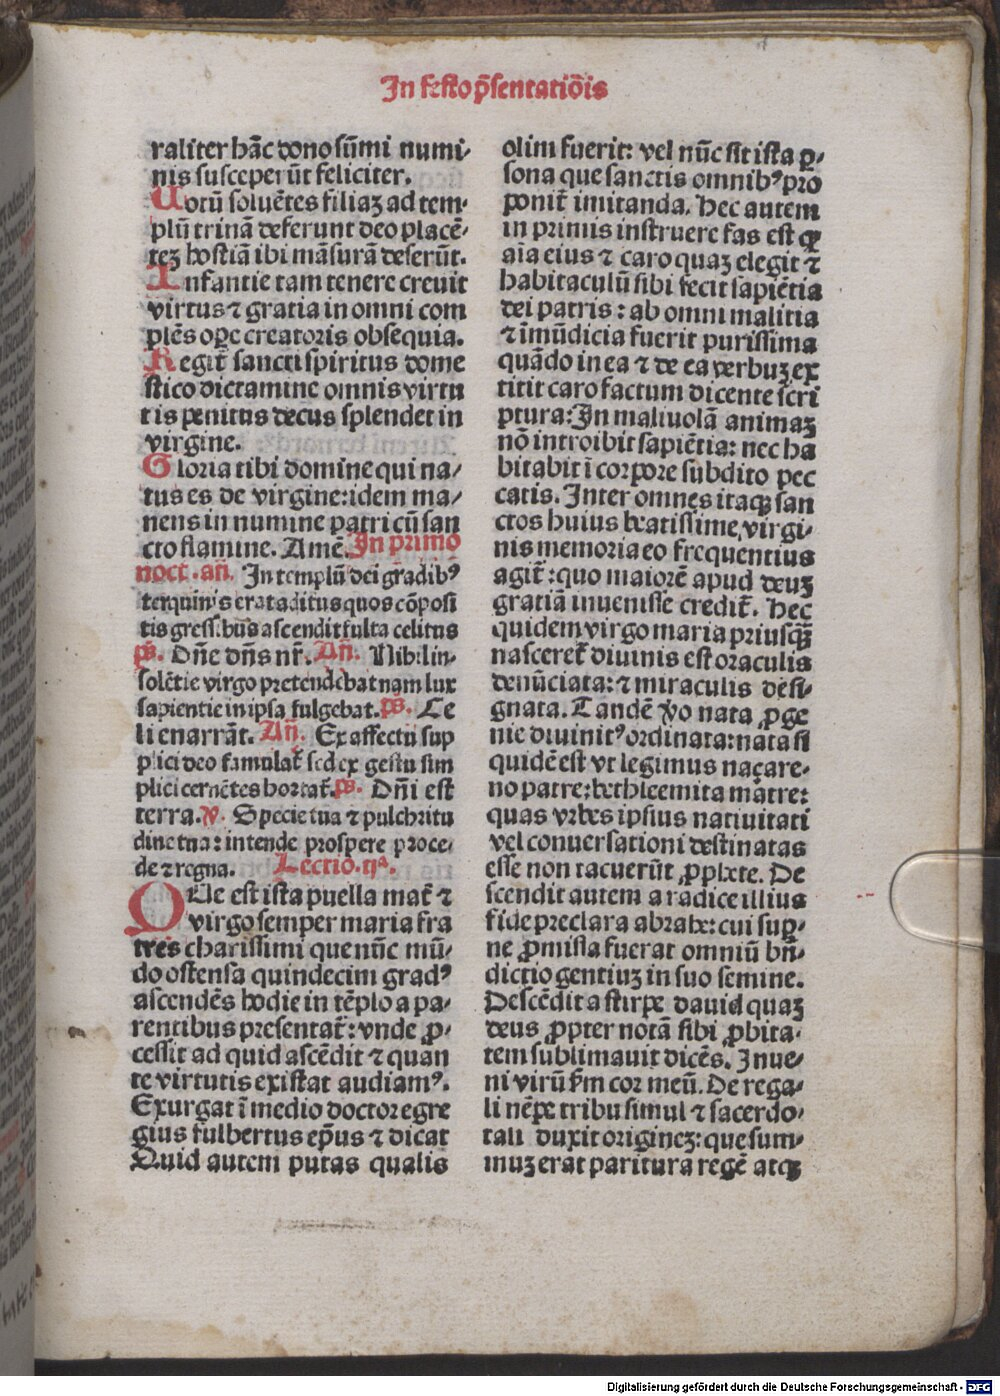 In festo p̄sentatiōis
raliter hāc dono sūmi numi-
nis susceperūt feliciter.
Uotū soluētes filiaꝫ ad tem-
plū trinā deferunt deo placē-
teꝫ hostiā ibi māsurā deserūt.
Infantie tam tenere creuit
virtus ⁊ gratia in omni com
plēs oꝑe creatoris obsequia.
Regit᷑ sancti spiritus dome
stico dictamine omnis virtu
tis penitus decus splendet in
virgine.
Gloria tibi domine qui na-
tus es de virgine: idem ma-
nens in numine patri cū san
cto flamine. Amē. In primo
noct. an̄. In templū dei gradibꝰ
terquinis erat aditus quos cōposi
tis gressibus ascendit fulta celitus
ps̄. Dn̄e dn̄s nr̄. An̄. Nihil in-
solētie virgo pretendebat nam lux
sapientie in ipsa fulgebat. ps̄. Ce
li enarrāt. An̄. Ex affectu sup
plici deo famulat᷑ sed ex gestu sim
plici cernētes hortat᷑. ps̄. Dn̄i est
terra. ℣. Specie tua ⁊ pulchritu
dine tua: intende prospere proce-
de ⁊ regna. Lectio .ꝑ̄ma.
QUe est ista puella mat᷑ ⁊
virgo semper maria fra
tres charissimi que nūc mū-
do ostensa quindecim gradꝰ
ascendēs hodie in tēplo a pa-
rentibus presentat᷑: vnde ꝓ-
cessit ad quid ascēdit ⁊ quan
te virtutis existat audiamꝰ.
Exurgat ī medio doctor egre
gius fulbertus ep̄us ⁊ dicat
Quid autem putas qualis
olim fuerit: vel nūc sit ista ꝑ-
sona que sanctis omnibꝰ pro
ponit᷑ imitanda. Hec autem
in primis instruere fas est ꝙ
aīa eius ⁊ caro quaꝫ elegit ⁊
habitaculū sibi fecit sapiētia
dei patris: ab omni malitia
⁊ īmūdicia fuerit purissima
quādo in ea ⁊ de ea verbuꝫ ex
titit caro factum dicente scri
ptura: In maliuolā animaꝫ
nō introibit sapiētia: nec ha
bitabit ī corpore subdito pec
catis. Inter omnes itaqꝫ san
ctos huius beatissime virgi-
nis memoria eo frequentius
agit᷑: quo maiorē apud deuꝫ
gratiā inuenisse credit᷑. Hec
quidem virgo maria priusqꝫ
nasceret᷑ diuinis est oraculis
denūciata: ⁊ miraculis desi-
gnata. Tandē ꝟo nata ꝓge
nie diuinitꝰ ordinata: nata si
quidē est vt legimus naçare-
no patre: bethleemita matre:
quas vrbes ipsius natiuitati
vel conuersationi destinatas
esse non tacuerūt ꝓphete. De
scendit autem a radice illius
fide preclara abrahe: cui suꝑ-
ne ꝓmissa fuerat omniū bn̄-
dictio gentiuꝫ in suo semine.
Descēdit a stirpe dauid quaꝫ
deus ꝓpter notā sibi ꝓbita-
tem sublimauit dicēs. Inue-
ni virū s̄m cor meū. De rega-
li nēpe tribu simul ⁊ sacerdo-
tali duxit origineꝫ: que sum-
muꝫ erat paritura regē atqꝫ
Digitalisierung gefördert durch die Deutsche Forschungsgemeinschaft - DFG